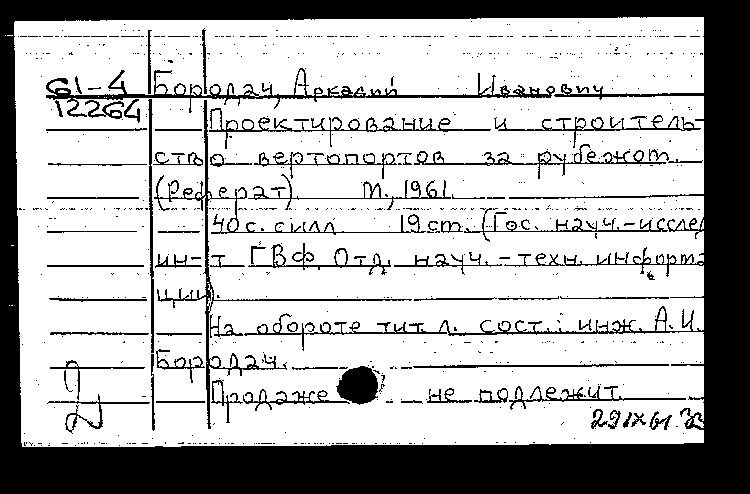 61-4 Бородач, Аркадий Иванович
12264
Проектирование и строитель-
ство вертопортов за рубежом.
(Реферат) М., 1961.
40с. с илл. 19 см. (Гос. науч.-исслед
ин-т ГВФ. Отд. науч.-техн. информа
ции).
На обороте тит. л. сост.: инж. А.И.
Бородач.
Продаже не подлежит.
2
29 IX 61